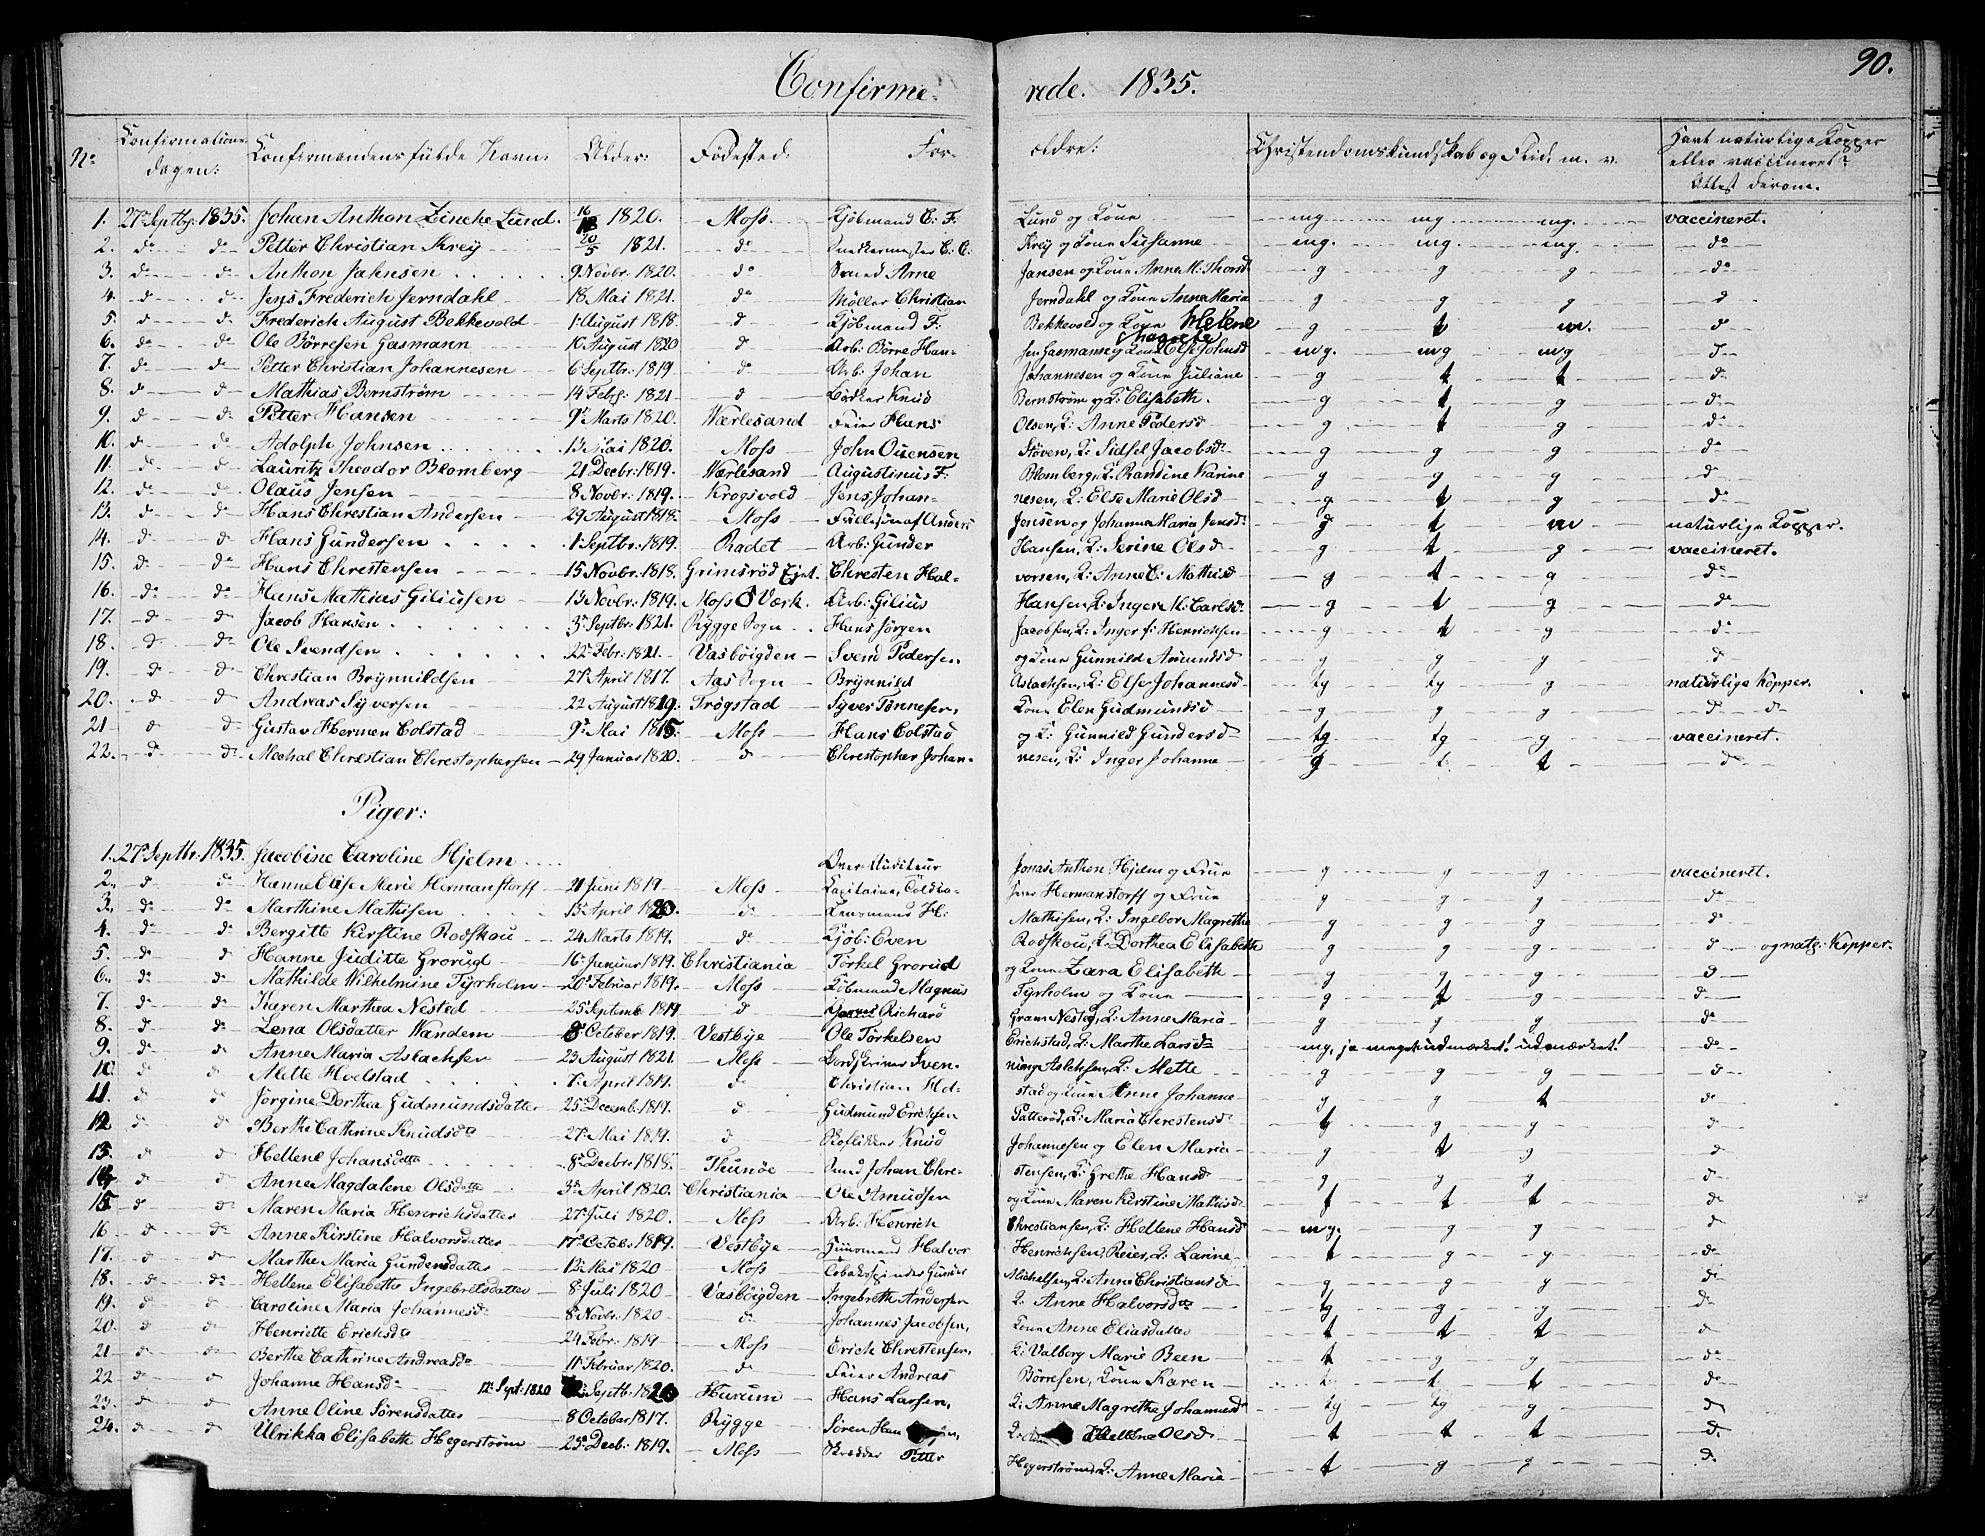 90.
Confirme- rede. 1835.
No Confirmations dagen: Confirmandens fulde Navn: Alder: Fødested: For- ældre: Christendomskundskab og Flid. m. v. Havt naturlige Kopper eller vaccineret? Attest derom.
1. 27 Septbr: 1835. Johan Anthon Zincke Lund. 1820. Moss. Kjöbmand C. F. Lund og Kone mg mg mg. vaccineret.
2. do do Petter Christian Krey 20/5 1821. do Snedkermester C. C. Krey og Kone Susanne mg. mg. mg. do
3. do do Anthon Jahnsen 9. Novbr. 1820. do Smed Arne Jansen og Kone Anne M. Thorsd g g g do
4. d do Jens Frederich Jerndahl 18 Mai 1821. do Møller Christian Jerndahl og Kone Anna Maria g g g d
5. d d Frederich August Bekkevold 1. August 1818. d Kjöbmand F: Bekkevold og Kone Helene Magrete g t m. d
6. do do Ole Börresen Gasmann 10 August 1820 d Arb: Börre Han- sen Gasman og Kone Else Johnsd mg. mg mg d
7. do do Petter Christian Johannesen 6 Septbr: 1819. d Arb. Johan Johannesen og Kone Juliane g t t d.
8. d d Mathias Bernström 14 Febr: 1821. d Bödker Knud Bernstrøm og K: Elisabeth. g t g d
9. d d Petter Hansen 9 Marts 1820. Værlesand Feier Hans Olsen, K: Anne Pedersd g t g do
10. d do Adolph Johnsen 13 Mai 1820. Moss John Ouensen Stöven, K: Sidsel Jacobsd g g g do
11. d d Lauritz Theodor Blomberg 21 Decbr: 1819. Værlesand Augustinus F: Blomberg, K: Randine Karine g g g d
12. do do Olaus Jensen 8 Novbr. 1819. Krogsvold Jens Johan- nesen, K: Else Marie Olsd g t g do
13. do d Hans Chrestian Andersen 29 August 1818. Moss Fællesøn af Anders Jensen og Johanna Maria Jensd: g t m naturlige Kopper.
14. d d Hans Gundersen 1 Septbr: 1819. Radet Arb: Gunder Hansen, K: Serine Olsd g t g vaccineret.
15. d d Hans Chrestensen 15 Novbr: 1818. Grimsröd Ejet. Chresten Hal- vorsen, K: Anne C: Mathisd g t g do
16. do do Hans Mathias Giliusen 13 Novbr: 1819. Moss Værk. Arb: Gilius Hansen, K: Inger M: Carlsd. g t g do
17. d d Jacob Hansen 3 Septbr: 1821. Rygge Sogn Hans Jörgen Jacobsen, K: Inger f: Henrichsen g t g d
18. d do Ole Svendsen 22 Febr: 1821. Vasböigden Svend Pedersen og Kone Gunnild Amundsd g g g d
19. d d Chrestian Brynnildsen 27 April 1817. Aas Sogn Brynnild Aslachsen, K: Else Johannesd tg tg g naturlige Kopper.
20. d d Andreas Syversen 22 August 1819. Trögstad Syver Tønnesen, Kone Elen Gudmundsd g g g d d
21 d d Gustav Hermen Colstad 9 Mai 1815. Moss Hans Colstad og K: Gunnild Gundersd tg tg g vaccineret.
22. d do Mechal Chrestian Chrestophersen 29 Januar 1820. d Chrestopher Johan- nesen, K: Inger Johanne g t t do
Piger:
1. 27 Septbr: 1835. Jacobine Caroline Hjelm Over Auditeur Jonas Anthon Hjelm og Frue g g g vaccineret.
2. d d Hanne Elise Marie Hermanstorff 21 Juni 1819 Moss Capitaine, Hermanstorff og Frue g g g d
3. do do Marthine Mathisen 13 April 1820. d Lensmand H: Mathisen, K: Ingebor Magrethe g g g do
4. d d Bergitte Kirstine Rodskou 24 Marts 1819. do Kjöb: Even Rodskou, K: Dorthea Elisabeth g g g d og natg: Kopper.
5. do d Hanne Juditte Grorud 16 Januar 1819. Christiania Torkel Grorud og Kone Zara Elisabeth g g g d
6. do do Mathilde Wilhelmine Tyrholm 20 Februar 1819. Moss Kjöbmand Magnus Tyrholm og Kone g t g d
7. do do Karen Marthea Nested 25 Septemb 1819 d Richard Gram Nested, K: Anne Maria g g g d
8. do do Lena Olsdatter Wandem 8 October 1819. Vestbye Ole Torkelsen Erichstad, K: Marthe Larsd mg, ja meget udmærket! udmærket! do
9. do d Anne Maria Aslachsen 23 August 1821. Moss Lordskriver Sven- ning Aslchsen, K: Mette g g g d
10. d d Alette Hvelstad April 1819. d Christian Hol- stad og Kone Anne Johanne g g t d
11. d d Jörgine Dorthea Gudmundsdatter 25 Decemb. 1819. d Gudmund Erichsen Patteröd, K: Maria Chrestensd t g g d
12 d d Berthe Cathrine Knudsd 27 Mai 1819. d Knud Johannesen og Elen Maria g t g d
13. d d Hellene Johansdatter 8 Decbr: 1818. Thunöe Smed Johan Chre- stensen, K: Grethe Hansd g g g d
14. d d Anne Magdalene Olsdatter 3 April 1820. Christiania Ole Amudsen og Kone Maren Kirstine Mathisd t t t d
15 d d Maren Maria Henrichsdatter 27 Juli 1820. Moss Arb: Henrich Chrestiansen, K: Hellene Hansd mg. g g d
16 d do Anne Kirstine Halvorsdatter 17 Octob: 1819. Vestbye Huusmand Halvor Henrichsen, Reier, K: Larine t g g d
17. d d Marthe Maria Gundersdatter 12 Mai 1820 Moss Tobakspinder Gunder Michelsen, K: Anne Christiansd g g g d
18. d do Hellene Elisabeth Ingebretsdatter 8 Juli 1820 Vasböigden Ingebreth Andersen K: Anne Halvorsd tg g g d
19. d d Caroline Maria Johannesd 8 Novbr: 1820 d Johannes Jacobsen, Kone Anne Eliasdatter t t t d
20. d d Henriette Erichsd 24 Febr: 1819 Moss Erich Chrestensen, K: Valborg Marie Been t g g d
21. d d Berthe Cathrine Andreasd 11 Februar 1820. d Feier Andreas Börresen, Kone Karen t t t d
22 d d Johanne Hansd 12 Sept: 1820 Septbr: 1820 Hurum Hans Larsen, K: Anne Magrethe Johannesd tg tg g d
23. d d Anne Oline Sörensdatter 8 October 1817. Rygge Sören Han K: Hellene Olsd t t t d
24. d d Ulrikka Elisabeth Hegerström 23 Decb: 1819. Moss Skredder Petter Hegerström, K: Anne Maria t g g d